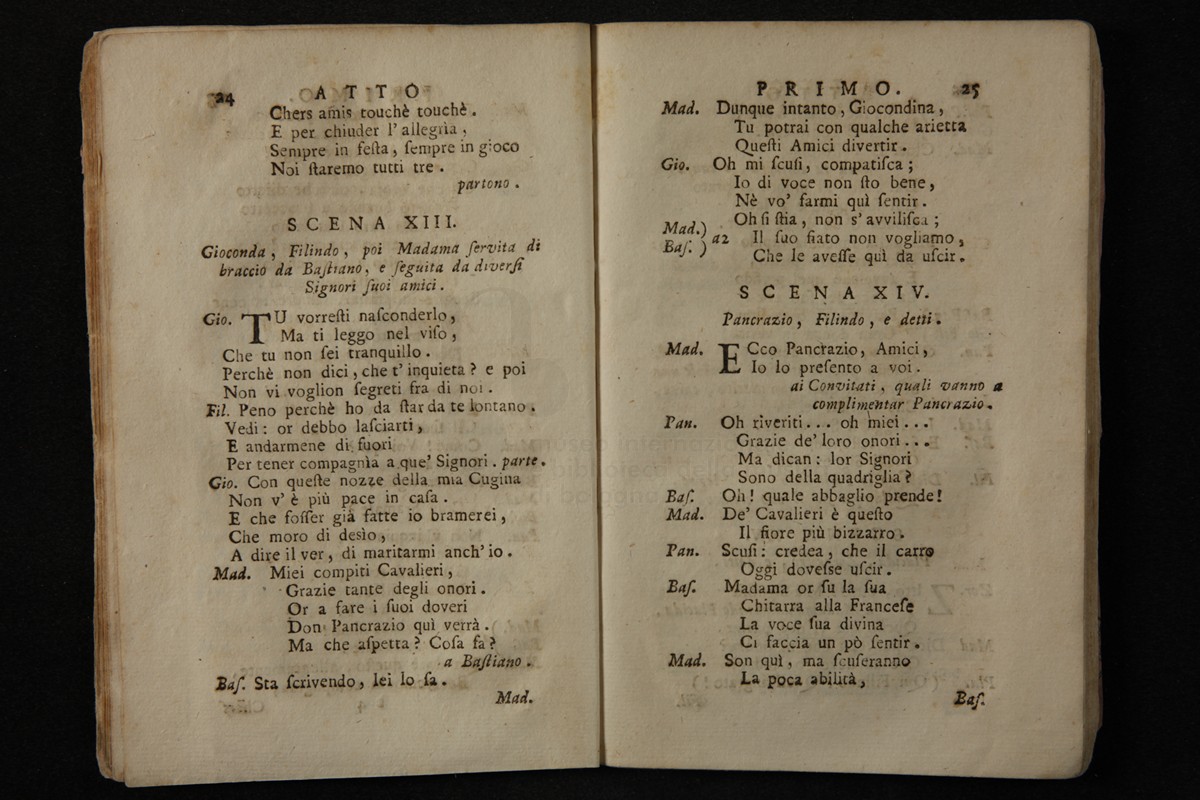 24 ATTO
Chers amis touchè touchè.
E per chiuder l'allegrìa,
Sempre in feſta, ſempre in gioco
Noi ſtaremo tutti tre.
partono.
SCENA XIII.
Gioconda, Filindo, poi Madama ſervita di
braccio da Baſtiano, e ſeguita da diverſi
Signori ſuoi amici.
Gio. TU vorreſti naſconderlo,
Ma ti leggo nel viſo,
Che tu non ſei tranquillo.
Perchè non dici, che t'inquieta? e poi
Non vi voglion ſegreti fra di noi.
Fil. Peno perchè ho da ſtar da te lontano.
Vedi: or debbo laſciarti,
E andarmene di fuori
Per tener compagnìa a que' Signori. parte.
Gio. Con queſte nozze della mia Cugina
Non v'è più pace in caſa.
E che foſſer già fatte io bramerei,
Che moro di desìo,
A dire il ver, di maritarmi anch'io.
Mad. Miei compiti Cavalieri,
Grazie tante degli onori.
Or a fare i ſuoi doveri
Don Pancrazio quì verrà.
Ma che aſpetta? Coſa fa?
a Baſtiano.
Baſ. Sta ſcrivendo, lei lo ſa.
Mad.
PRIMO. 25
Mad. Dunque intanto, Giocondina,
Tu potrai con qualche arietta
Queſti Amici divertir.
Gio. Oh mi ſcuſi, compatiſca;
Io di voce non ſto bene,
Nè vo' farmi quì ſentir.
Mad.) Oh ſi ſtia, non s'avviliſca;
Baſ. ) a2 Il ſuo fiato non vogliamo,
Che le aveſſe quì da uſcir.
SCENA XIV.
Pancrazio, Filindo, e detti.
Mad. ECco Pancrazio, Amici,
Io lo preſento a voi.
ai Convitati, quali vanno a
complimentar Pancrazio.
Pan. Oh riveriti... oh miei...
Grazie de' loro onori...
Ma dican: lor Signori
Sono della quadriglia?
Baſ. Oh! quale abbaglio prende!
Mad. De' Cavalieri è queſto
Il fiore più bizzarro.
Pan. Scuſi: credea, che il carro
Oggi doveſse uſcir.
Baſ. Madama or ſu la ſua
Chitarra alla Franceſe
La voce ſua divina
Ci faccia un pò ſentir.
Mad. Son quì, ma ſcuſeranno
La poca abilità,
Baſ.